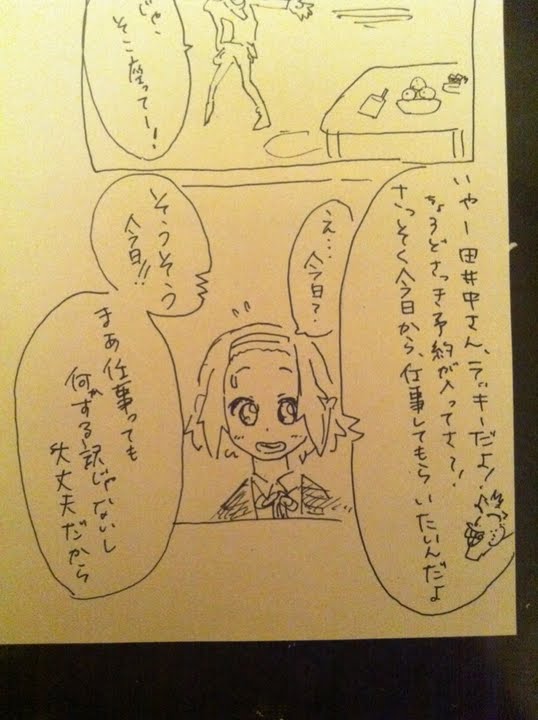 じゃ、
そこ座ってー！
いやー田井中さん、ラッキーだよ！
ちょうどさっき予約が入ってさ？！
さっそく今日から、仕事してもらいたいんだよ
え…
今日？
そうそう
今日！！
まあ仕事っても
何がする訳じゃないし
大丈夫だから